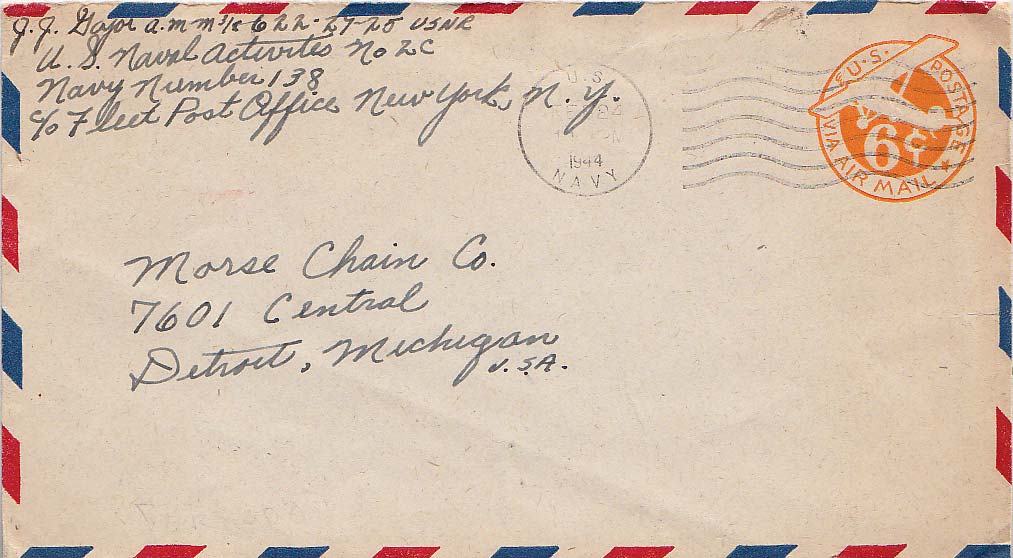 J. J. Gajor a.m.m 3/c 622-27-25 USNR
U. S. Naval Activites No 2C
Navy Number 138
c/o Fleet Post Office New York, N. Y.
U.S.
1944
NAVY
U.S. POSTAGE
6¢
VIA AIR MAIL
Morse Chain Co.
7601 Central
Detroit, Michigan
U.S.A.